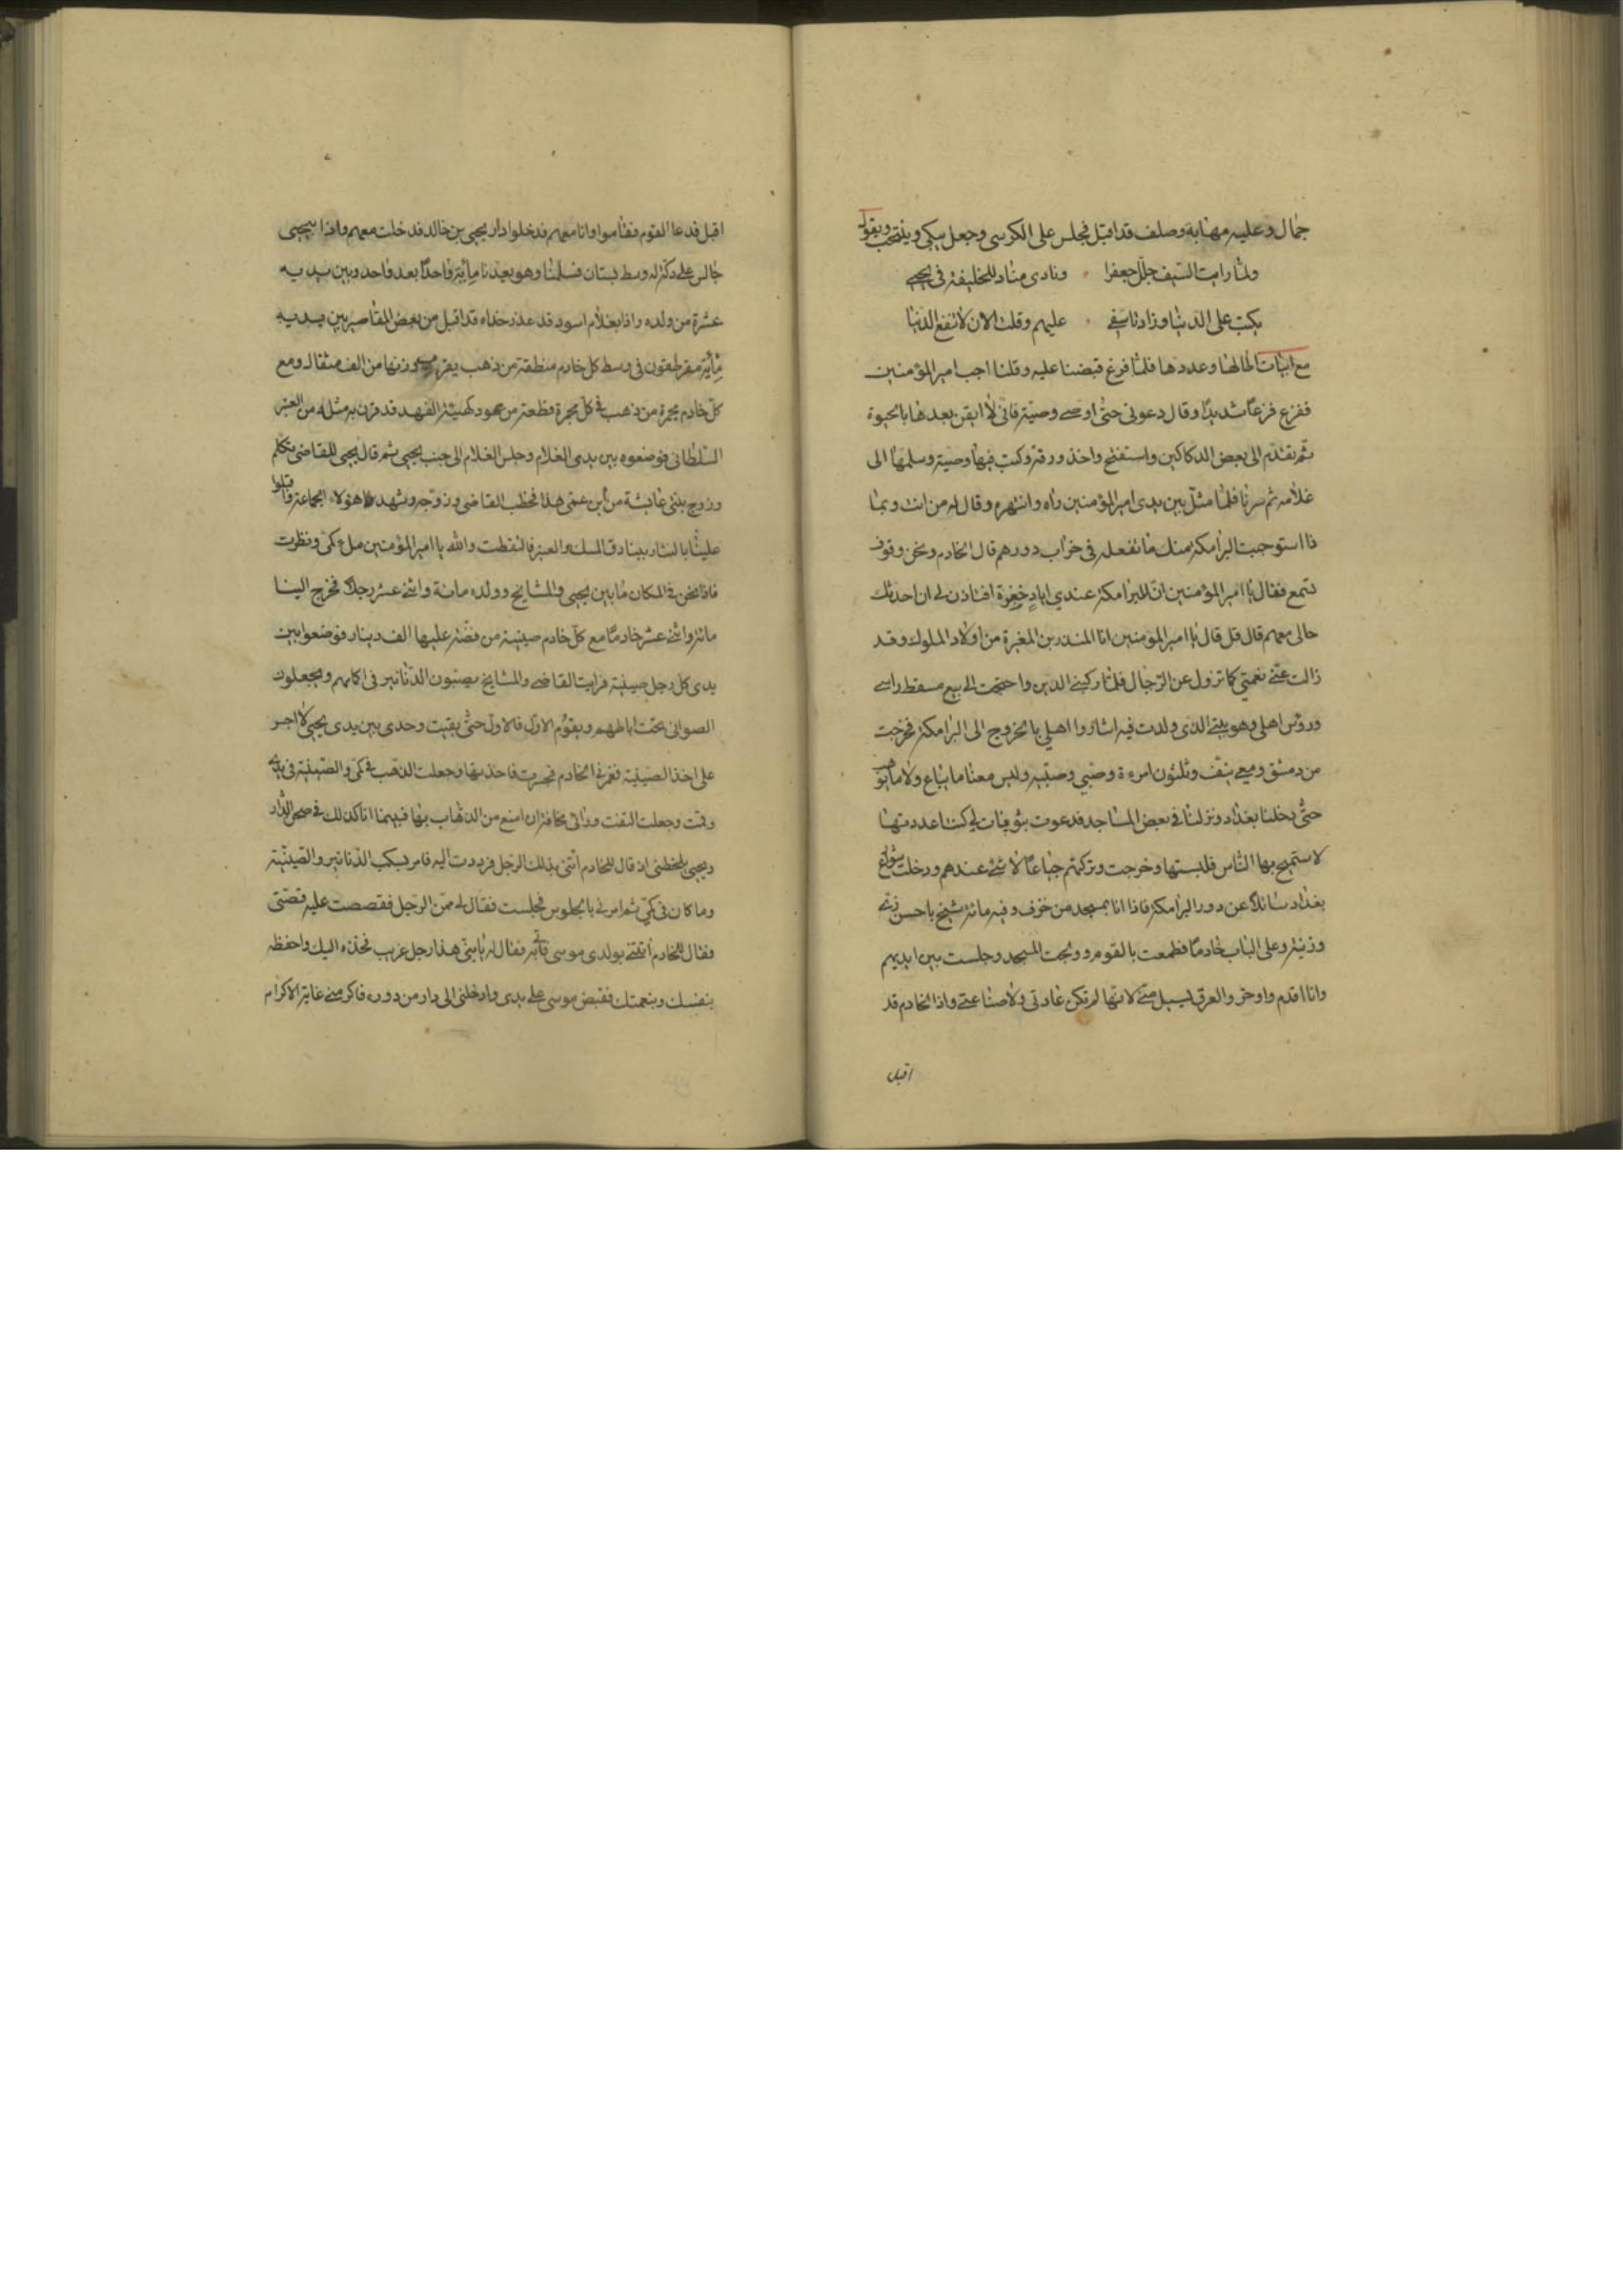 جمال وعليه مهابة وصلف قد اقبل فجلس على الكرسى وجعل يبكى وينتحب ويقول
ولما رايت السيف جلل جعفرا ونادى مناد للخليفة فى يحيى
بكيت على الدنيا وزاد تاسفى عليهم وقلت الان لا تنفع الدنيا
مع ابيات اطالها وعددها فلما فرغ قبضنا عليه وقلنا اجب امير المؤمنين
ففزع فزعا شديدا وقال دعونى حتى اوصى وصية فانى لا ايقن بعدها بالحيوة
ثم تقدم الى بعض الدكاكين واستفتح واخذ ورقة وكتب فيها وصية وسلمها الى
غلامه ثم سرنا فلما مثل بين يدى امير المؤمنين راه وانتهره وقال له من انت وبما
ذا استوجبت البرامكة منك ما تفعله فى خراب دورهم قال الخادم ونحن وقوف
نسمع فقال يا امير المؤمنين ان للبرامكة عندي اياد خضرة افتاذن لى ان احدثك
حالى معهم قال قل قال يا امير المؤمنين انا المنذر بن المغيرة من اولاد الملوك وقد
زالت عنى نعمتي كما تزول عن الرجال فلما ركبنى الدين واحتجت الى بيع مسقط راسى
ورؤس اهلى وهو بيتى الذى ولدت فيه اشاروا اهلي بالخروج الى البرامكة فخرجت
من دمشق ومعى نيف وثلثون امرءة وصبي وصبيه وليس معنا ما يباع ولا ما يوهب
حتى دخلنا بغداد ونزلنا فى بعض المساجد فدعوت بثويبات لى كنت اعددتها
لاستميح بها الناس فلبستها وخرجت وتركتهم جياعا لا شئ عندهم ودخلت شوارع
بغداد سائلا عن دور البرامكة فاذا انا بمسجد مزخرف وفيه مائة شيخ باحسن زى
وزينة وعلى الباب خادما فطمعت بالقوم وولجت المسجد وجلست بين ايديهم
وانا اقدم واوخر والعرق يسيل منى لانها لم تكن عادتى ولا صناعتى واذا الخادم قد
اقبل
اقبل فدعا القوم فقاموا وانا معهم فدخلوا دار يحيى بن خالد فدخلت معهم واذا بيحيى
جالس على دكة له وسط بستان فسلمنا وهو يعدنا مأية واحدا بعد واحد وبين يديه
عشرة من ولده واذا بغلام اسود قد عذر خداه قد اقبل من بعض المقاصير بين يديه
مأية مقرطقون فى وسط كل خادم منطقة من ذهب يقرب وزنها من الف مثقال ومع
كل خادم مجمرة من ذهب فى كل مجمرة قطعة من عود كهيئة الفهد قد قرن به مثله من العنبر
السلطانى فوضعوه بين يدى الغلام وجلس الغلام الى جنب يحيى ثم قال يحيى للقاضى تكلم
وزوج بنتى عايشة من ابن عمى هذا فخطب القاضى وزوجه وشهد هؤلاء الجماعة فاقبلوا
علينا بالنثار ببنادق المسك والعنبر فالتقطت والله يا امير المؤمنين ملء كمى ونظرت
فاذا نحن فى المكان ما بين يحيى والمشايخ وولده مائة واثنى عشر رجلا فخرج الينا
مائة واثنى عشر خادما مع كل خادم صينية من فضة عليها الف دينار فوضعوا بين
يدى كل رجل صينية فرايت القاضى والمشايخ يصبون الدنانير فى اكمامهم ويجعلون
الصوانى تحت اباطهم ويقوم الاول فالاول حتى بقيت وحدى بين يدى يحيى لا اجسر
على اخذ الصينية فغمزنى الخادم فجسرت فاخذتها وجعلت الذهب فى كمى والصينية فى يدى
وقمت وجعلت التفت ورائى مخافة ان امنع من الذهاب بها فبينما انا كذلك فى صحن الدار
ويحيى يلحظنى اذ قال للخادم ائتنى بذلك الرجل فرددت اليه فامر بسكب الدنانير والصينية
وما كان فى كمى ثم امرنى بالجلوس فجلست فقال لى ممن الرجل فقصصت عليه قصتى
فقال للخادم ائتنى بولدى موسى فأتى به فقال له يا بنى هذا رجل غريب فخذه اليك واحفظه
بنفسك وبنعمتك فقبض موسى على يدى وادخلنى الى دار من دوره فاكرمنى غاية الاكرام